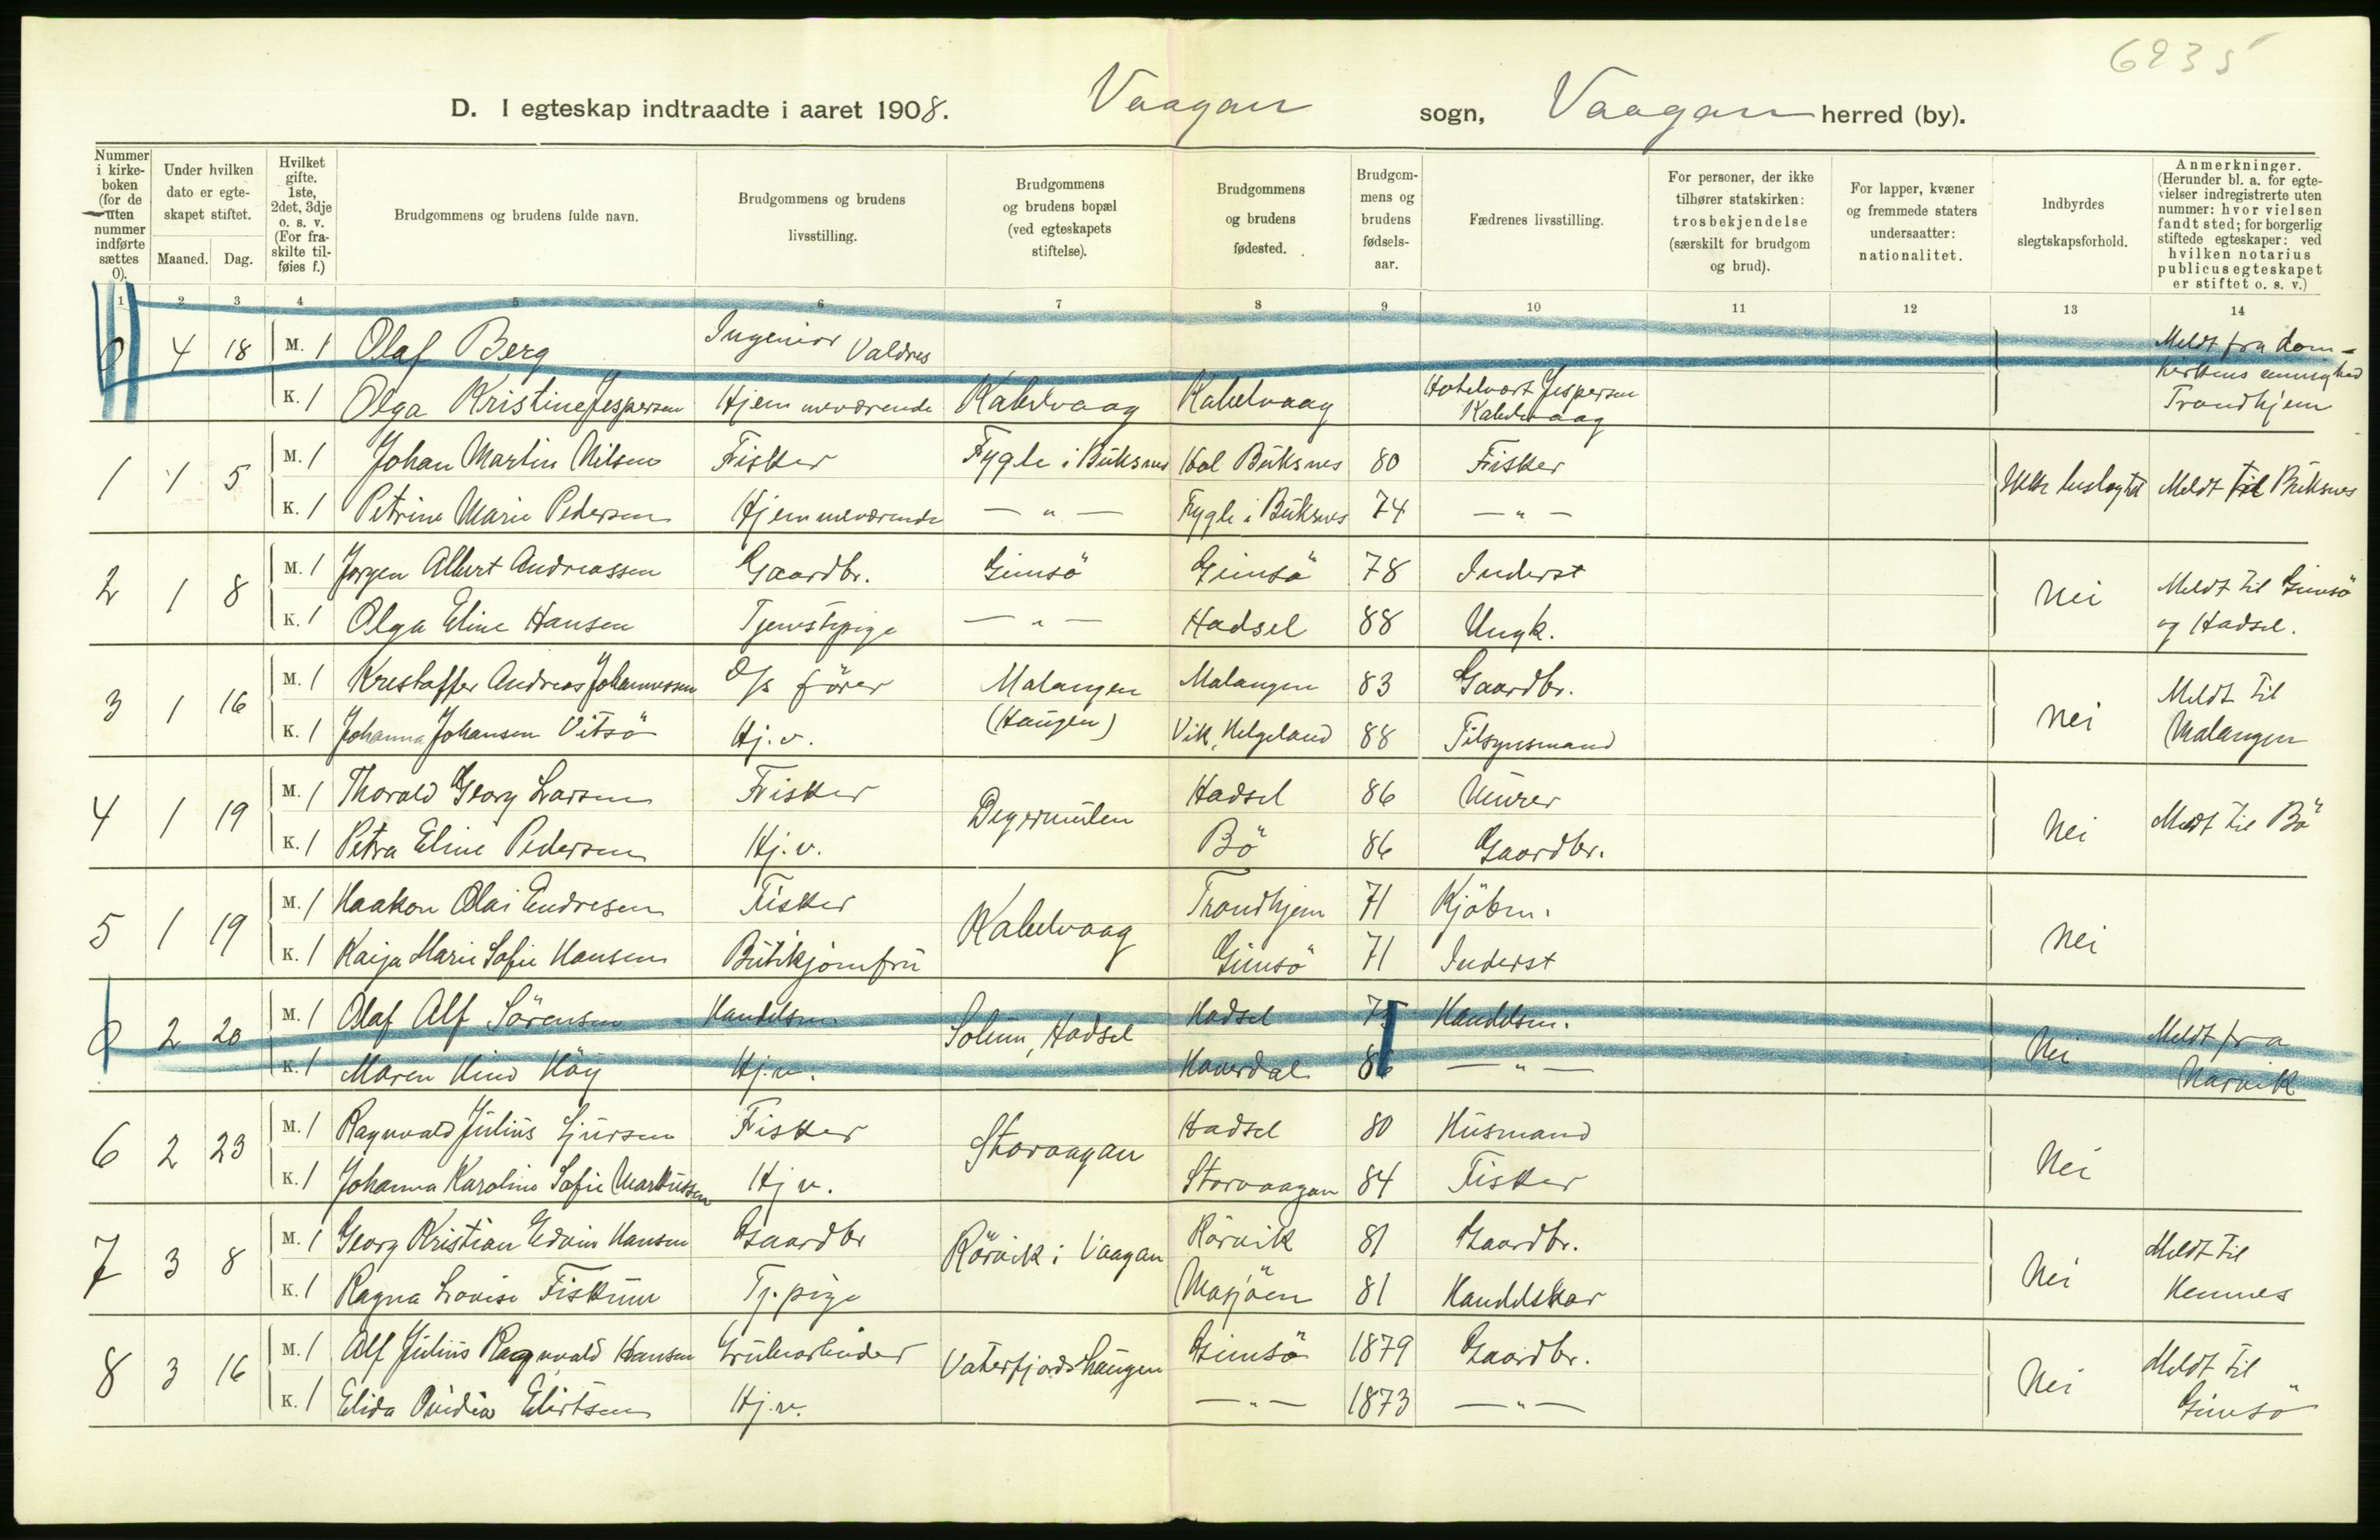 6235
D. I egteskap indtraadte i aaret 1908. Vaagan sogn, Vaagan herred (by).
Nummer i kirke-boken (for de uten nummer indførte sættes 0).
Under hvilken dato er egte-skapet stiftet.
Maaned. Dag.
Hvilket gifte. 1ste, 2det, 3dje o. s. v. (For fra-skilte til-føies f.)
Brudgommens og brudens fulde navn.
Brudgommens og brudens livsstilling.
Brudgommens og brudens bopæl (ved egteskapets stiftelse).
Brudgommens og brudens fødested.
Brudgom-mens og brudens fødsels-aar.
Fædrenes livsstilling.
For personer, der ikke tilhører statskirken: trosbekjendelse (særskilt for brudgom og brud).
For lapper, kvæner og fremmede staters undersaatter: nationalitet.
Indbyrdes slegtskapsforhold.
Anmerkninger. (Herunder bl. a. for egte-vielser indregistrerte uten nummer: hvor vielsen fandt sted; for borgerlig stiftede egteskaper: ved hvilken notarius publicus egteskapet er stiftet o. s. v.)
1 2 3 4 5 6 7 8 9 10 11 12 13 14
0 4 18 M. 1 Olaf Berg Ingeniør Valdres Meldt fra Dom-
K. 1 Olga Kristine Jespersen Hjemmeværende Kabelvaag Kabelvaag Hotelvært Jespersen Kabelvaag kirkens menighed Trondhjem
1 1 5 M. 1 Johan Martin Nilsen Fisker Fygle i Buksnes Hol Buksnes 80 Fisker Ikke beslægtet Meldt til Buksnes
K. 1 Petrine Marie Pedersen Hjemmeværende — " — Fygle i Buksnes 74 — " —
2 1 8 M. 1 Jørgen Albert Andreassen Gaardbr. Gimsö Gimsö 78 Inderst Nei Meldt til Gimsö
K. 1 Olga Eline Hansen Tjenestepige — " — Hadsel 88 Ungk. og Hadsel.
3 1 16 M. 1 Krestoffer Andreas Johannessen D/s förer Malangen Malangen 83 Gaardbr. Nei Meldt til
K. 1 Johanna Johansen Vitsö Hj. v. (Haugen) Vik, Helgeland 88 Tilsynsmand Malangen
4 1 19 M. 1 Thorald Georg Larsen Fisker Digermulen Hadsel 86 Murer Nei Meldt til Bö
K. 1 Petra Eline Pedersen Hj. v. Bö 86 Gaardbr.
5 1 19 M. 1 Haakon Olai Endresen Fisker Kabelvaag Trondhjem 71 Kjöbm. Nei
K. 1 Kaija Marie Sofie Hansen Butikjomfru Gimsö 71 Inderst
0 2 20 M. 1 Olaf Alf Sörensen Handelsm. Solum, Hadsel Hadsel 75 Handelsm. Nei Meldt fra
K. 1 Maren Hind Höy Hj. v. 86 — " — Narvik
6 2 23 M. 1 Ragnvald Julius Sjursen Fisker Storvaagan Hadsel 80 Husmand Nei
K. 1 Johanna Karoline Sofie Markussen Hj v. Storvaagan 84 Fisker
7 3 8 M. 1 Georg Kristian Edvin Hansen Gaardbr Rörvik i Vaagan Rörvik 81 Gaardbr. Nei Meldt til
K. 1 Ragna Lovise Fiskum Tj. pige Mosjöen 81 Handelskar Hemnes
8 3 16 M. 1 Alf Julius Ragnvald Hansen Grubearbeider Vaterfjordshaugen Gimsö 1879 Gaardbr. Nei Meldt til
K. 1 Elida Ovidia Elertsen Hj. v. — " — 1873 — " — Gimsö